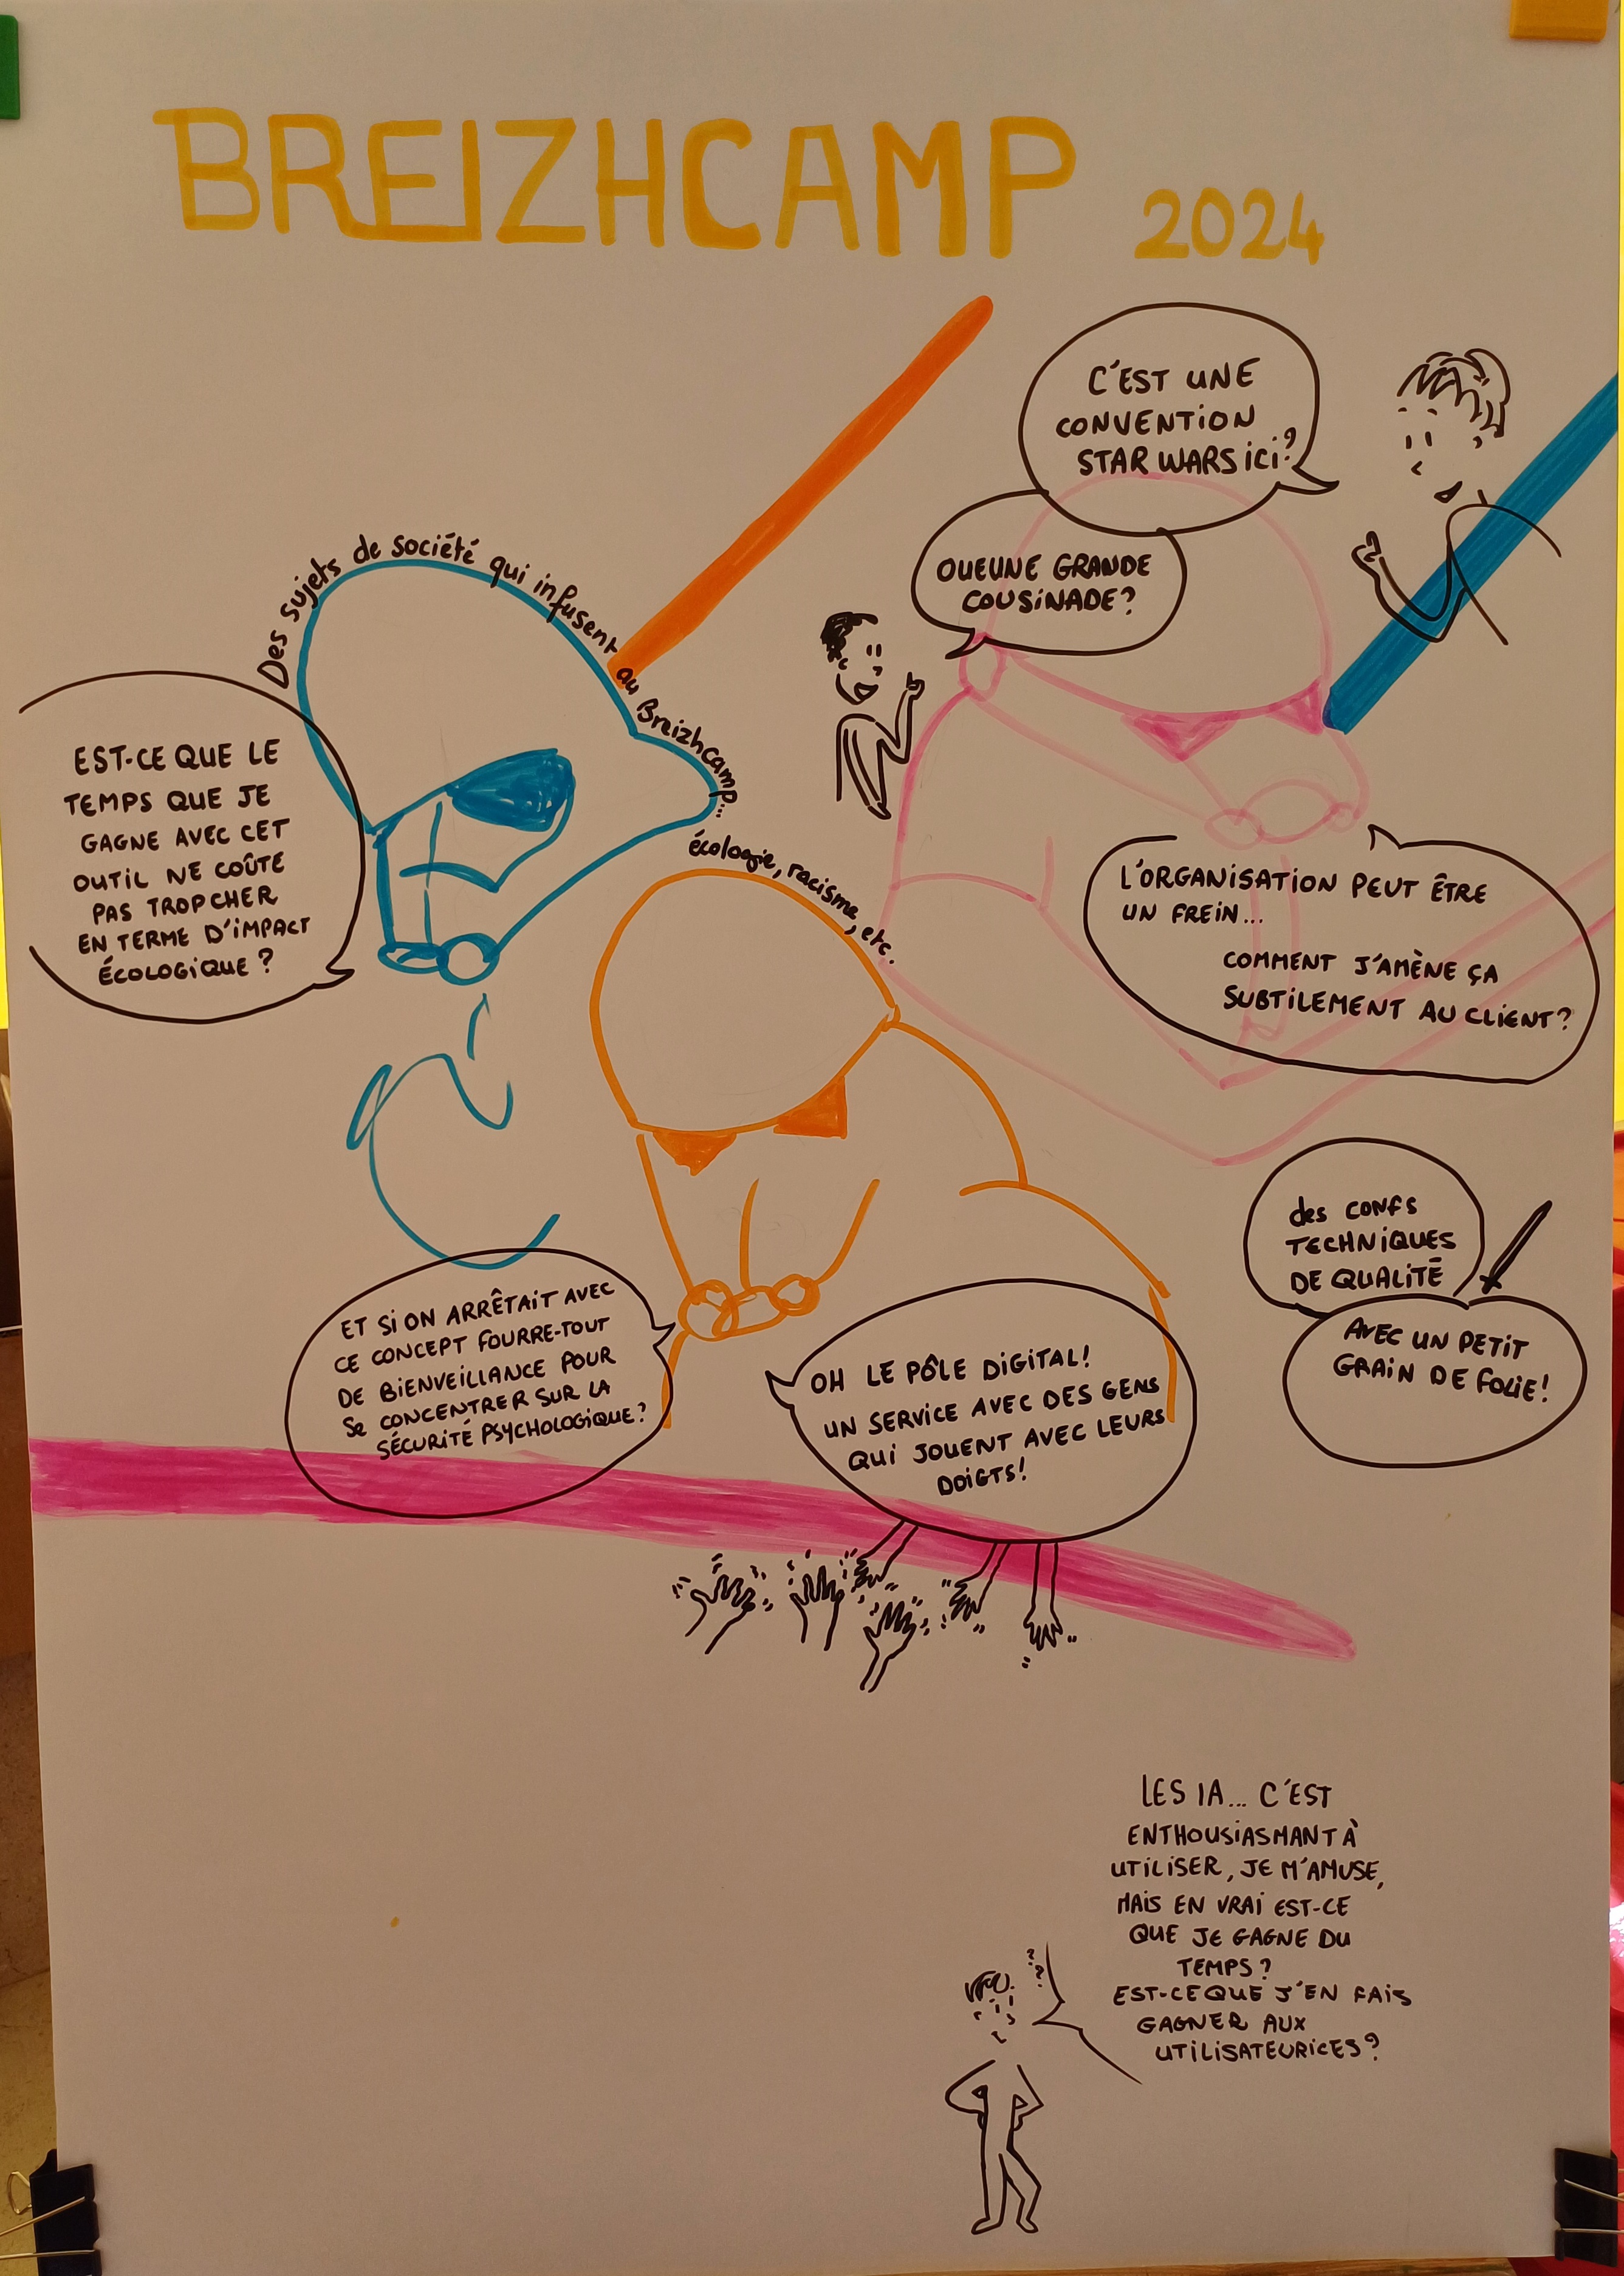 BREIZHCAMP 2024
C'EST UNE
CONVENTION
STAR WARS ICI?
OUEUNE GRANDE
COUSINADE?
Des sujets de société qui infusent au Breizhcamp...
écologie, racisme, etc.
EST-CE QUE LE
TEMPS QUE JE
GAGNE AVEC CET
OUTIL NE COÛTE
PAS TROP CHER
EN TERME D'IMPACT
ÉCOLOGIQUE?
L'ORGANISATION PEUT ÊTRE
UN FREIN...
COMMENT J'AMÈNE ÇA
SUBTILEMENT AU CLIENT?
des CONFS
TECHNIQUES
DE QUALITÉ
AVEC UN PETIT
GRAIN DE FOLIE!
ET SI ON ARRÊTAIT AVEC
CE CONCEPT FOURRE-TOUT
DE BIENVEILLANCE POUR
Se CONCENTRER SUR LA
SÉCURITÉ PSYCHOLOGIQUE?
OH LE PÔLE DIGITAL!
UN SERVICE AVEC DES GENS
QUI JOUENT AVEC LEURS
DOIGTS!
LES IA... C'EST
ENTHOUSIASMANT À
UTILISER, JE M'AMUSE,
MAIS EN VRAI EST-CE
QUE JE GAGNE DU
TEMPS?
EST-CE QUE J'EN FAIS
GAGNER AUX
UTILISATEURICES?
???